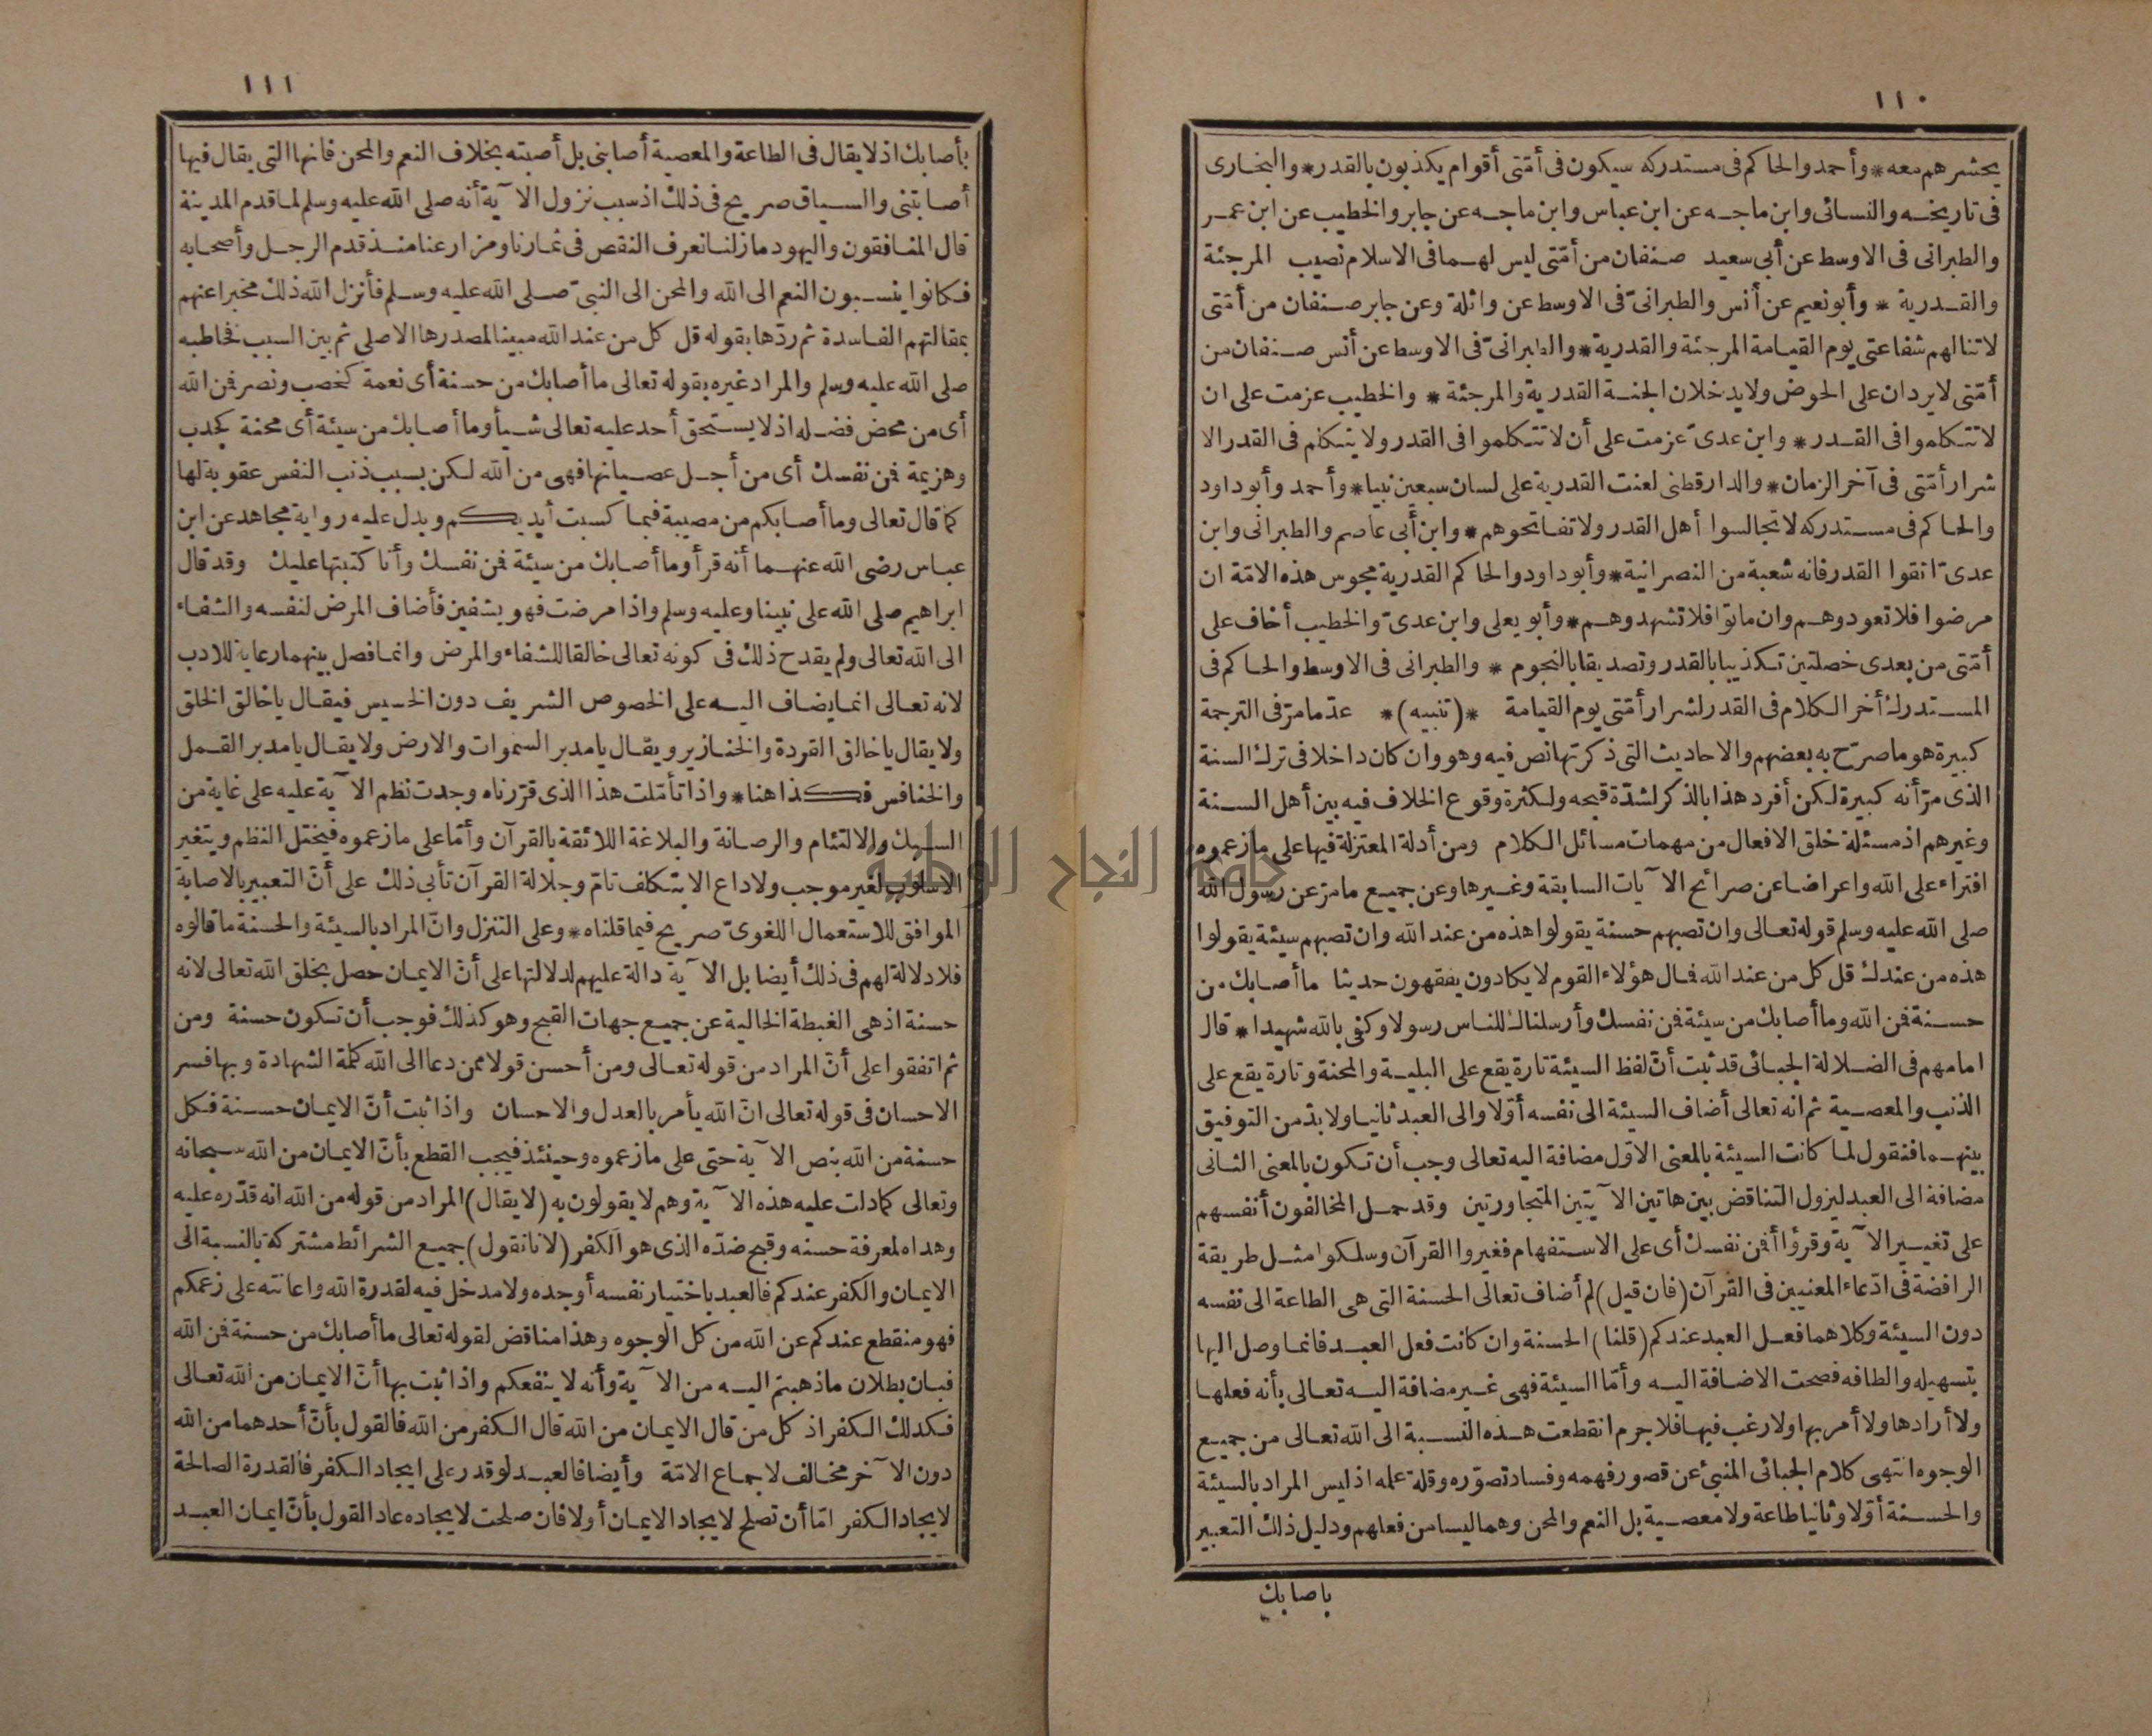 ١١٠
يحشرهم معه * وأحمد والحاكم فى مستدركه سيكون فى أمّتى أقوام يكذبون بالقدر * والبخارى
فى تاريخه والنسائى وابن ماجه عن ابن عباس وابن ماجه عن جابر والخطيب عن ابن عمر
والطبرانى فى الاوسط عن أبى سعيد صنفان من أمّتى ليس لهما فى الاسلام نصيب المرجئة
والقدرية * وأبو نعيم عن أنس والطبرانىّ فى الاوسط عن واثلة وعن جابر صنفان من أمّتى
لا تنالهم شفاعتى يوم القيامة المرجئة والقدرية * والطبرانىّ فى الاوسط عن أنس صنفان من
أمّتى لا يردان على الحوض ولا يدخلان الجنة القدرية والمرجئة * والخطيب عزمت على ان
لا تتكلموا فى القدر * وابن عدىّ عزمت على أن لا تتكلموا فى القدر ولا يتكلم فى القدر الا
شرار أمّتى فى آخر الزمان * والدارقطنى لعنت القدرية على لسان سبعين نبيا * وأحمد وأبو داود
والحاكم فى مستدركه لا تجالسوا أهل القدر ولا تفاتحوهم * وابن أبى عاصم والطبرانى وابن
عدىّ اتقوا القدر فانه شعبة من النصرانية * وأبو داود والحاكم القدرية مجوس هذه الامّة ان
مرضوا فلا تعودوهم وان ماتوا فلا تشهدوهم * وأبو يعلى وابن عدىّ والخطيب أخاف على
أمّتى من بعدى خصلتين تكذيبا بالقدر وتصديقا بالنجوم * والطبرانى فى الاوسط والحاكم فى
المستدرك أخر الكلام فى القدر لشرار أمّتى يوم القيامة * (تنبيه) * عدّ ما مرّ فى الترجمة
كبيرة هو ما صرّح به بعضهم والاحاديث التى ذكرتها نص فيه وهو وان كان داخلا فى ترك السنة
الذى مرّ أنه كبيرة لكن أفرد هذا بالذكر لشدّة قبحه ولكثرة وقوع الخلاف فيه بين أهل السنة
وغيرهم اذ مسئلة خلق الافعال من مهمات مسائل الكلام ومن أدلة المعتزلة فيها على ما زعموه
افتراء على الله واعراضا عن صرائح الآيات السابقة وغيرها وعن جميع ما مرّ عن رسول الله
صلى الله عليه وسلم قوله تعالى وان تصبهم حسنة يقولوا هذه من عند الله وان تصبهم سيئة يقولوا
هذه من عندك قل كل من عند الله فمال هؤلاء القوم لا يكادون يفقهون حديثا ما أصابك من
حسنة فمن الله وما أصابك من سيئة فمن نفسك وأرسلناك للناس رسولا وكفى بالله شهيدا * قال
امامهم فى الضلالة الجبائى قد ثبت أنّ لفظ السيئة تارة يقع على البلية والمحنة وتارة يقع على
الذنب والمعصية ثم انه تعالى أضاف السيئة الى نفسه أوّلا والى العبد ثانيا ولا بدّ من التوفيق
بينهما فنقول لما كانت السيئة بالمعنى الاوّل مضافة اليه تعالى وجب أن تكون بالمعنى الثانى
مضافة الى العبد ليزول التناقض بين هاتين الآيتين المتجاورتين وقد حمل المخالفون أنفسهم
على تغيير الآية وقرؤا أفمن نفسك أى على الاستفهام فغيروا القرآن وسلكوا مثل طريقة
الرافضة فى ادّعاء المعنيين فى القرآن (فان قيل) لم أضاف تعالى الحسنة التى هى الطاعة الى نفسه
دون السيئة وكلاهما فعل العبد عندكم (قلنا) الحسنة وان كانت فعل العبد فانما وصل اليها
بتسهيله والطافه فصحت الاضافة اليه وأمّا السيئة فهى غير مضافة اليه تعالى بأنه فعلها
ولا أرادها ولا أمر بها ولا رغب فيها فلا جرم انقطعت هذه النسبة الى الله تعالى من جميع
الوجوه انتهى كلام الجبائى المنبئ عن قصور فهمه وفساد تصوّره وقلة علمه اذ ليس المراد بالسيئة
والحسنة أوّلا وثانيا طاعة ولا معصية بل النعم والمحن وهما ليسا من فعلهم ودليل ذلك التعبير
باصابك
١١١
بأصابك اذ لا يقال فى الطاعة والمعصية أصابنى بل أصبته بخلاف النعم والمحن فانها التى يقال فيها
أصابتنى والسياق صريح فى ذلك اذ سبب نزول الآية أنه صلى الله عليه وسلم لما قدم المدينة
قال المنافقون واليهود ما زلنا نعرف النقص فى ثمارنا ومزارعنا منذ قدم الرجل وأصحابه
فكانوا ينسبون النعم الى الله والمحن الى النبىّ صلى الله عليه وسلم فأنزل الله ذلك مخبرا عنهم
بمقالتهم الفاسدة ثم ردّها بقوله قل كل من عند الله مبينا لمصدرها الاصلى ثم بين السبب فخاطبه
صلى الله عليه وسلم والمراد غيره بقوله تعالى ما أصابك من حسنة أى نعمة كخصب ونصر فمن الله
أى من محض فضله اذ لا يستحق أحد عليه تعالى شيأ وما أصابك من سيئة أى محنة كجدب
وهزيمة فمن نفسك أى من أجل عصيانها فهى من الله لكن بسبب ذنب النفس عقوبة لها
كما قال تعالى وما أصابكم من مصيبة فبما كسبت أيديكم ويدل عليه رواية مجاهد عن ابن
عباس رضى الله عنهما أنه قرأ وما أصابك من سيئة فمن نفسك وأنا كتبتها عليك وقد قال
ابراهيم صلى الله على نبينا وعليه وسلم واذا مرضت فهو يشفين فأضاف المرض لنفسه والشفاء
الى الله تعالى ولم يقدح ذلك فى كونه تعالى خالقا للشفاء والمرض وانما فصل بينهما رعاية للادب
لانه تعالى انما يضاف اليه على الخصوص الشريف دون الخسيس فيقال يا خالق الخلق
ولا يقال يا خالق القردة والخنازير ويقال يا مدبر السموات والارض ولا يقال يا مدبر القمل
والخنافس فكذا هنا * واذا تأمّلت هذا الذى قرّرناه وجدت نظم الآية عليه على غاية من
السبك والالتئام والرصانة والبلاغة اللائقة بالقرآن وأمّا على ما زعموه فيختل النظم ويتغير
الاسلوب لغير موجب ولا داع الا بتكلف تامّ وجلالة القرآن تأبى ذلك على أنّ التعبير بالاصابة
الموافق للاستعمال اللغوىّ صريح فيما قلناه * وعلى التنزل وانّ المراد بالسيئة والحسنة ما قالوه
فلا دلالة لهم فى ذلك أيضا بل الآية دالة عليهم لدلالتها على أنّ الايمان حصل بخلق الله تعالى لانه
حسنة اذ هى الغبطة الخالية عن جميع جهات القبح وهو كذلك فوجب أن تكون حسنة ومن
ثم اتفقوا على أنّ المراد من قوله تعالى ومن أحسن قولا ممن دعا الى الله كلمة الشهادة وبها فسر
الاحسان فى قوله تعالى انّ الله يأمر بالعدل والاحسان واذا ثبت أنّ الايمان حسنة فكل
حسنة من الله بنص الآية حتى على ما زعموه وحينئذ فيجب القطع بأنّ الايمان من الله سبحانه
وتعالى كما دلت عليه هذه الآية وهم لا يقولون به (لا يقال) المراد من قوله من الله انه قدّره عليه
وهداه لمعرفة حسنه وقبح ضدّه الذى هو الكفر (لانا نقول) جميع الشرائط مشتركة بالنسبة الى
الايمان والكفر عندكم فالعبد باختيار نفسه أوجده ولا مدخل فيه لقدرة الله واعانته على زعمكم
فهو منقطع عندكم عن الله من كل الوجوه وهذا مناقض لقوله تعالى ما أصابك من حسنة فمن الله
فبان بطلان ما ذهبتم اليه من الآية وأنه لا ينفعكم واذا ثبت بها أنّ الايمان من الله تعالى
فكذلك الكفر اذ كل من قال الايمان من الله قال الكفر من الله فالقول بأنّ أحدهما من الله
دون الآخر مخالف لاجماع الامّة وأيضا فالعبد لو قدر على ايجاد الكفر فالقدرة الصالحة
لايجاد الكفر امّا أن تصلح لايجاد الايمان أولا فان صلحت لايجاده عاد القول بأنّ ايمان العبد
جامعة النجاح الوطنية